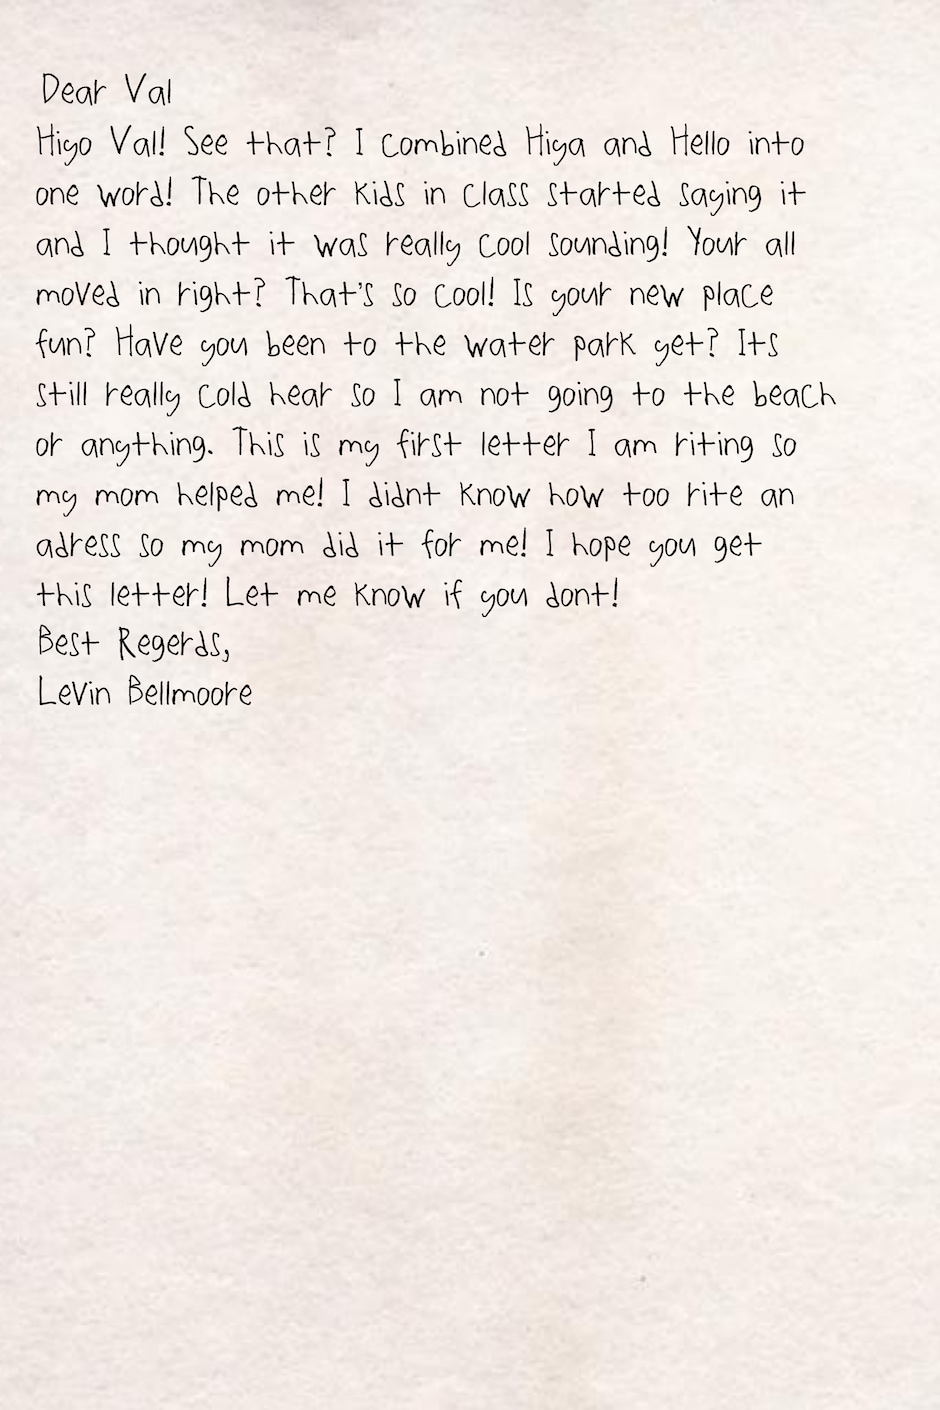 Dear Val
Hiyo Val! See that? I combined Hiya and Hello into
one word! The other kids in class started saying it
and I thought it was really cool sounding! Your all
moved in right? That's so cool! Is your new place
fun? Have you been to the water park yet? Its
still really cold hear so I am not going to the beach
or anything. This is my first letter I am riting so
my mom helped me! I didnt know how too rite an
adress so my mom did it for me! I hope you get
this letter! Let me know if you dont!
Best Regerds,
Levin Bellmoore